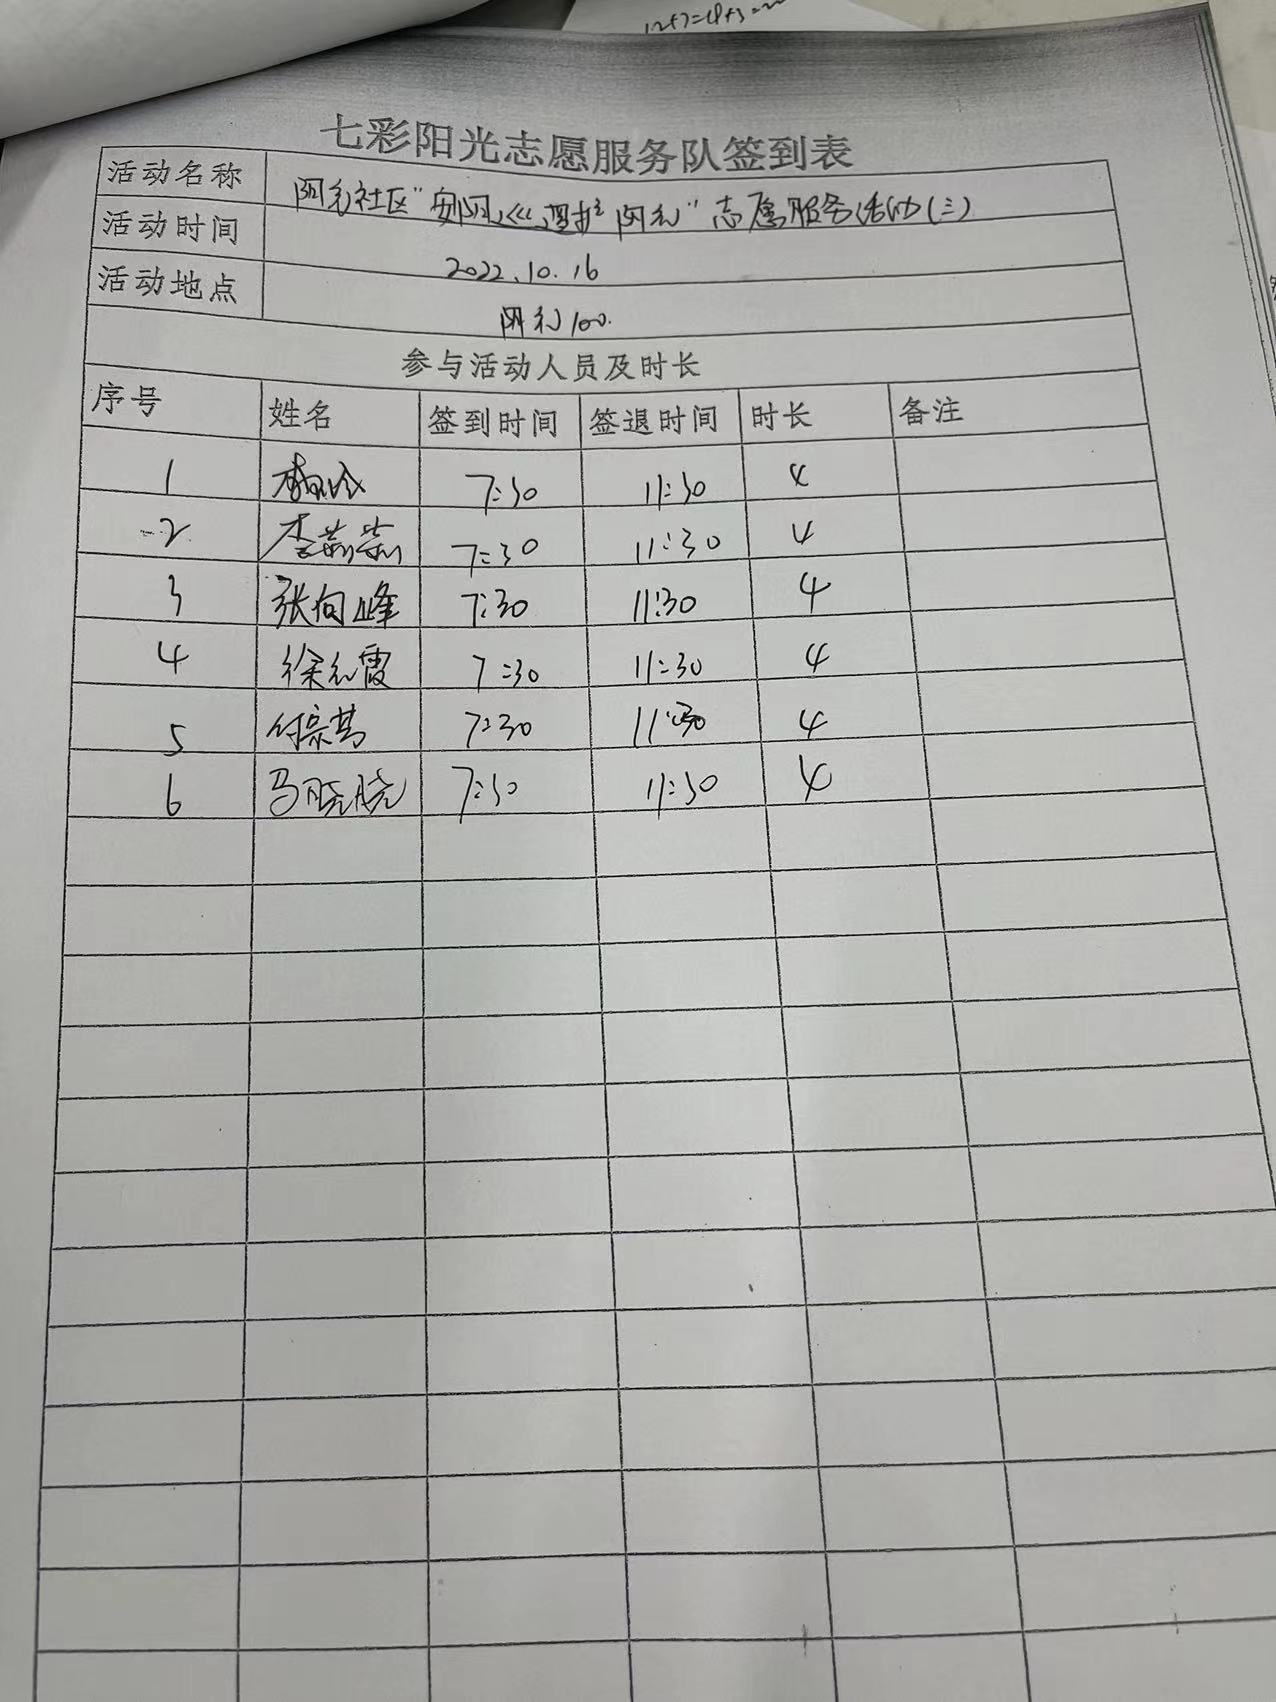 12+7=19+3=22
七彩阳光志愿服务队签到表
活动名称 社区" " 志愿服务活动(三)
活动时间 2022.10.16
活动地点 100.
参与活动人员及时长
序号 姓名 签到时间 签退时间 时长 备注
1 7:30 11:30 4
2 李燕燕 7:30 11:30 4
3 张向峰 7:30 11:30 4
4 徐红霞 7:30 11:30 4
5 付宗英 7:30 11:30 4
6 马晓晓 7:30 11:30 4